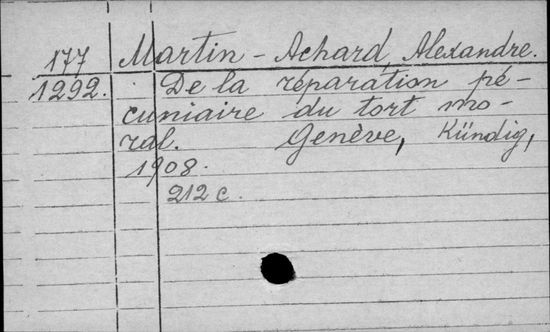 177 Martin-Achard, Alexandre.
1292. De la réparation pé-
cuniaire du tort mo-
ral. Genève, Kündig,
1908.
212 c.